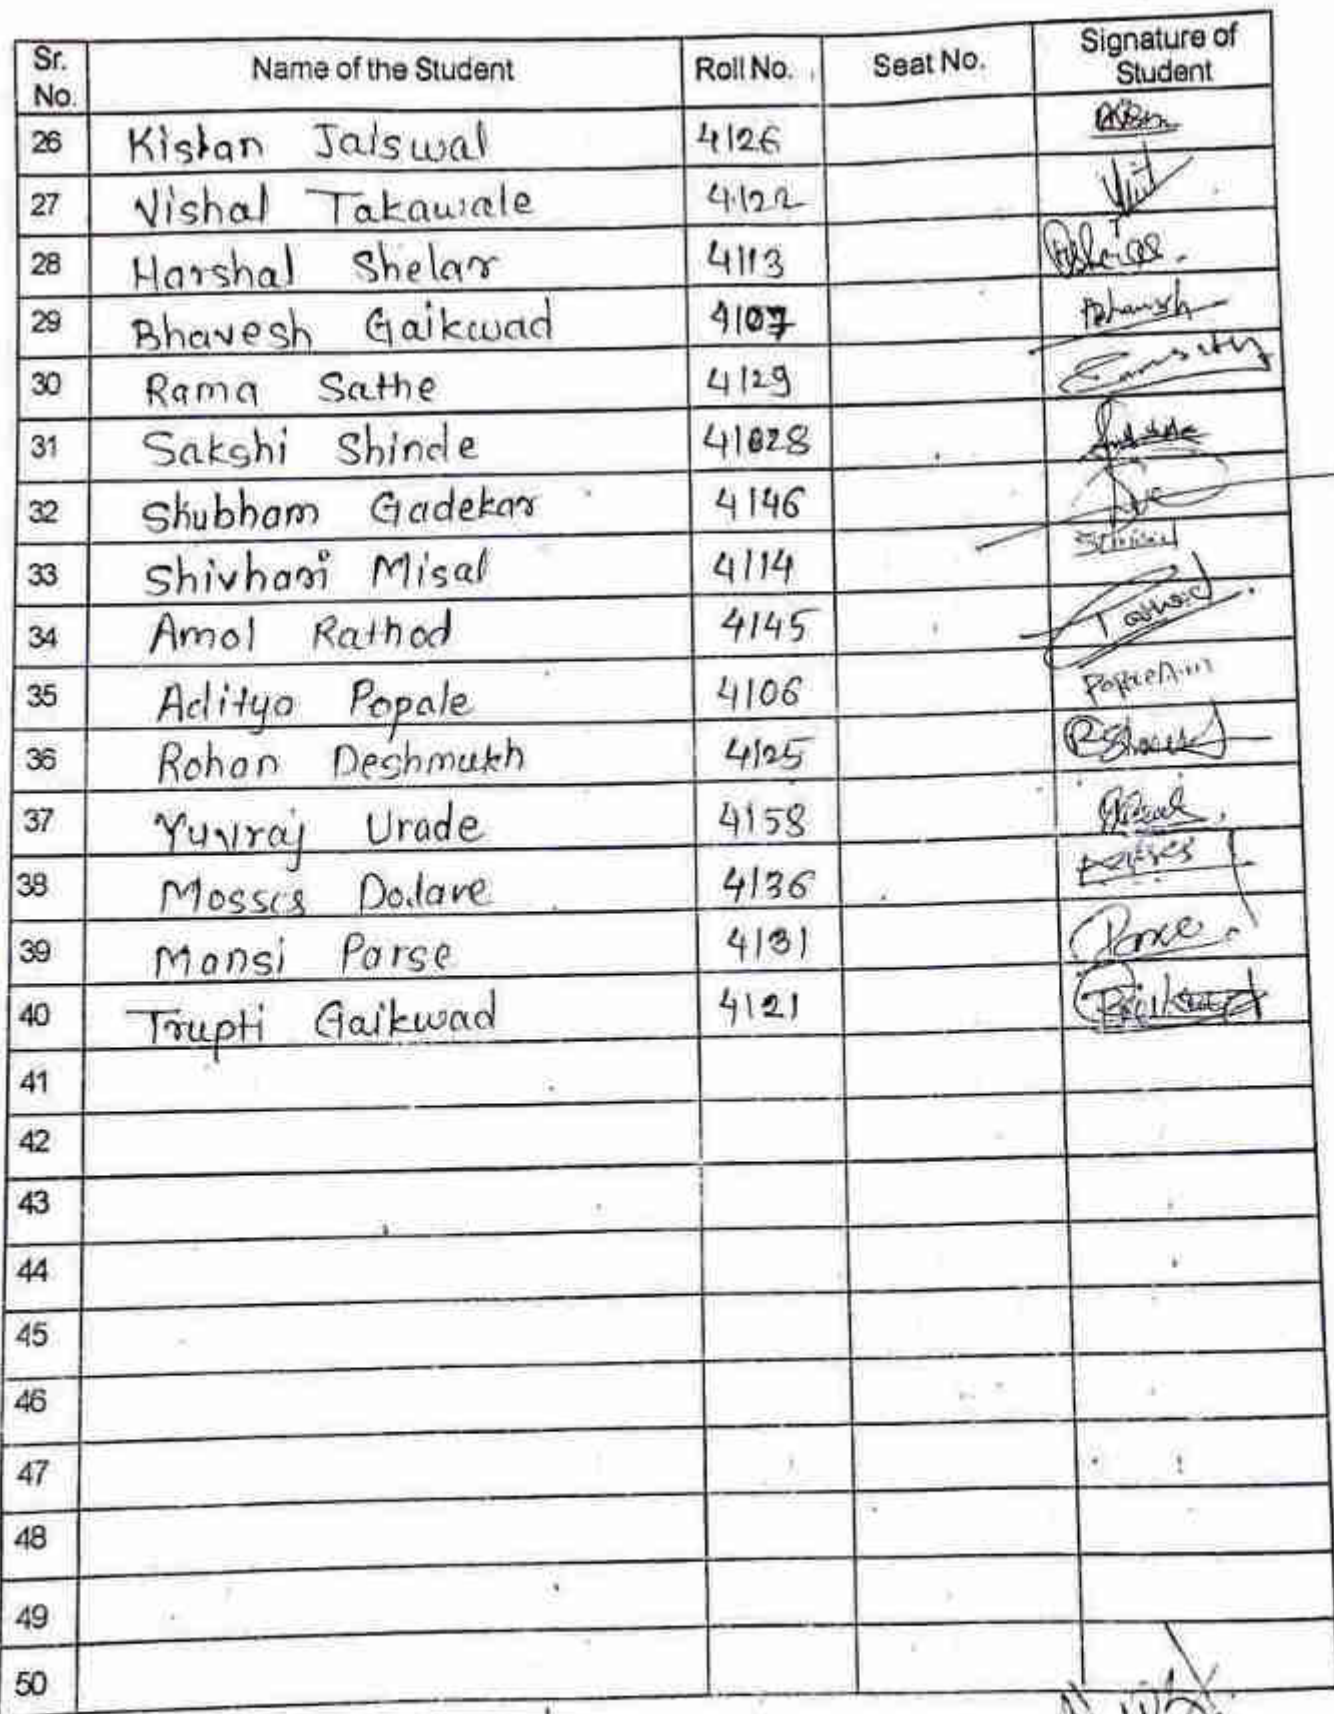 Sr. No. Name of the Student Roll No. Seat No. Signature of Student
26 Kistan Jaiswal 4126
27 Vishal Takawale 4122
28 Harshal Shelar 4113
29 Bhavesh Gaikwad 4107
30 Rama Sathe 4129
31 Sakshi Shinde 41028
32 Shubham Gadekar 4146
33 Shivhari Misal 4114
34 Amol Rathod 4145 Rathod
35 Aditya Popale 4106
36 Rohan Deshmukh 4125
37 Yuvraj Urade 4158
38 Mosses Dolare 4136
39 Mansi Parse 4131 Parse
40 Trupti Gaikwad 4121
41
42
43
44
45
46
47
48
49
50